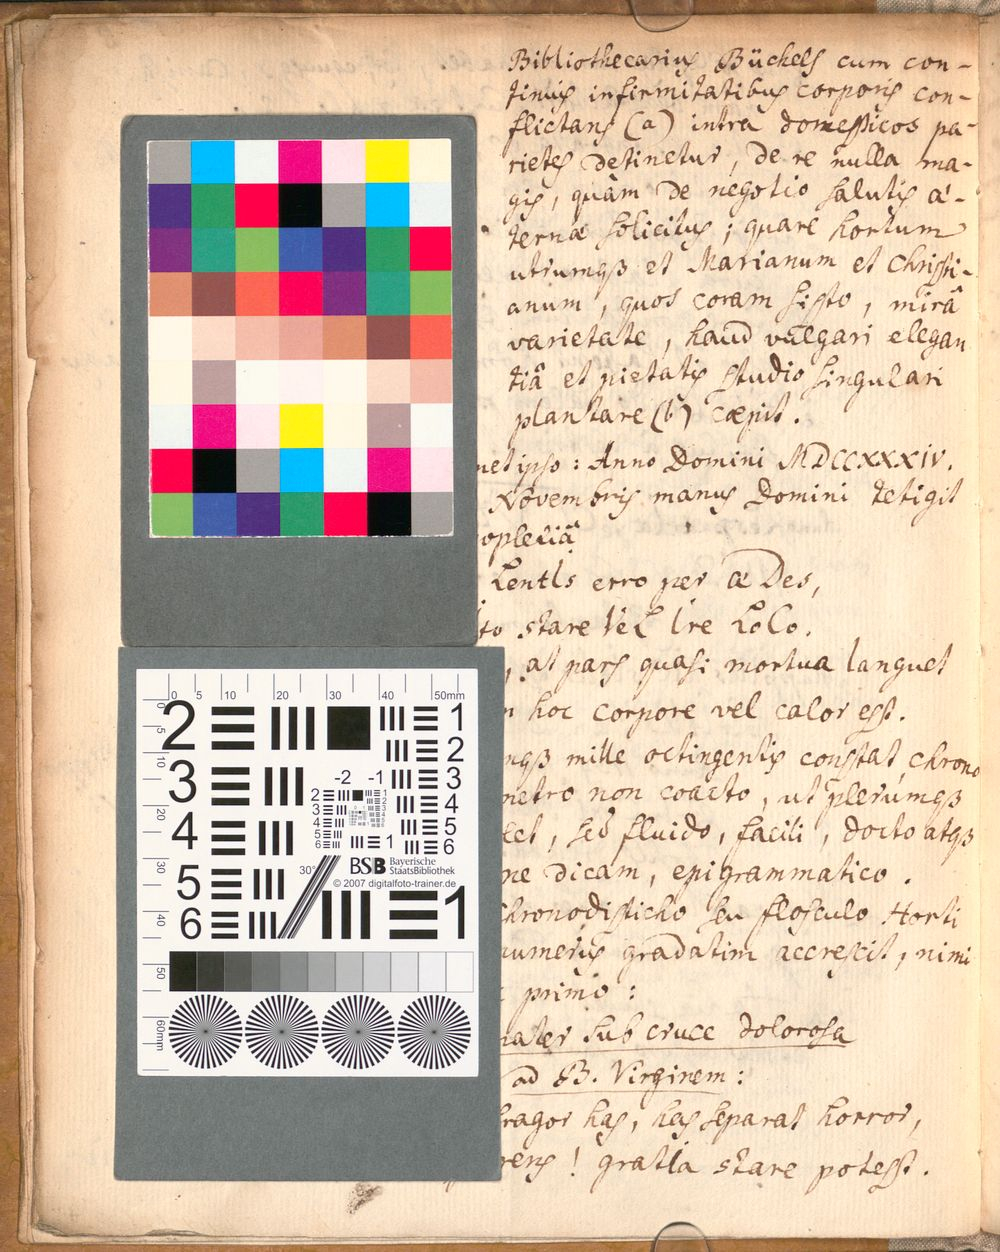 Bibliothecarius Büchels cum con-
tinuis infirmitatibus corporis con-
flictans (a) intra domesticos pa-
rietes detinetur, de re nulla ma-
gis, quàm de negotio salutis æ-
ternæ solicitus; quare hortum
utrumqꝫ et Marianum et Christi-
anum, quos coram sisto, mirâ
varietate, haud vulgari elegan
tiâ et pietatis studio singulari
plantare (b) cœpit.
met ipso: Anno Domini MDCCXXXIV.
Novembris manus Domini tetigit
oplexiâ
LentIs erro per æDes,
to stare VeL Ire LoCo.
, at pars quasi mortua languet
hoc corpore vel calor est.
mqꝫ mille octingentis constat chrono
metro non coacto, ut plerumqꝫ
let, sed fluido, facili, docto atqꝫ
ne dicam, epigrammatico.
Chronodisticho seu flosculo Horti
numerus gradatim accrescit, nimi
primo:
mater sub cruce dolorosa
ad B. Virginem:
fragor has, has separat horror,
rens! gratIa stare potest.
0 5 10 20 30 40 50mm
0 10 20 30 40 50 60mm
2 3 4 5 6
1 2 3 4 5 6
-2 -1
2 3 4 5 6
1
1
30°
BSB Bayerische
StaatsBibliothek
© 2007 digitalfoto-trainer.de